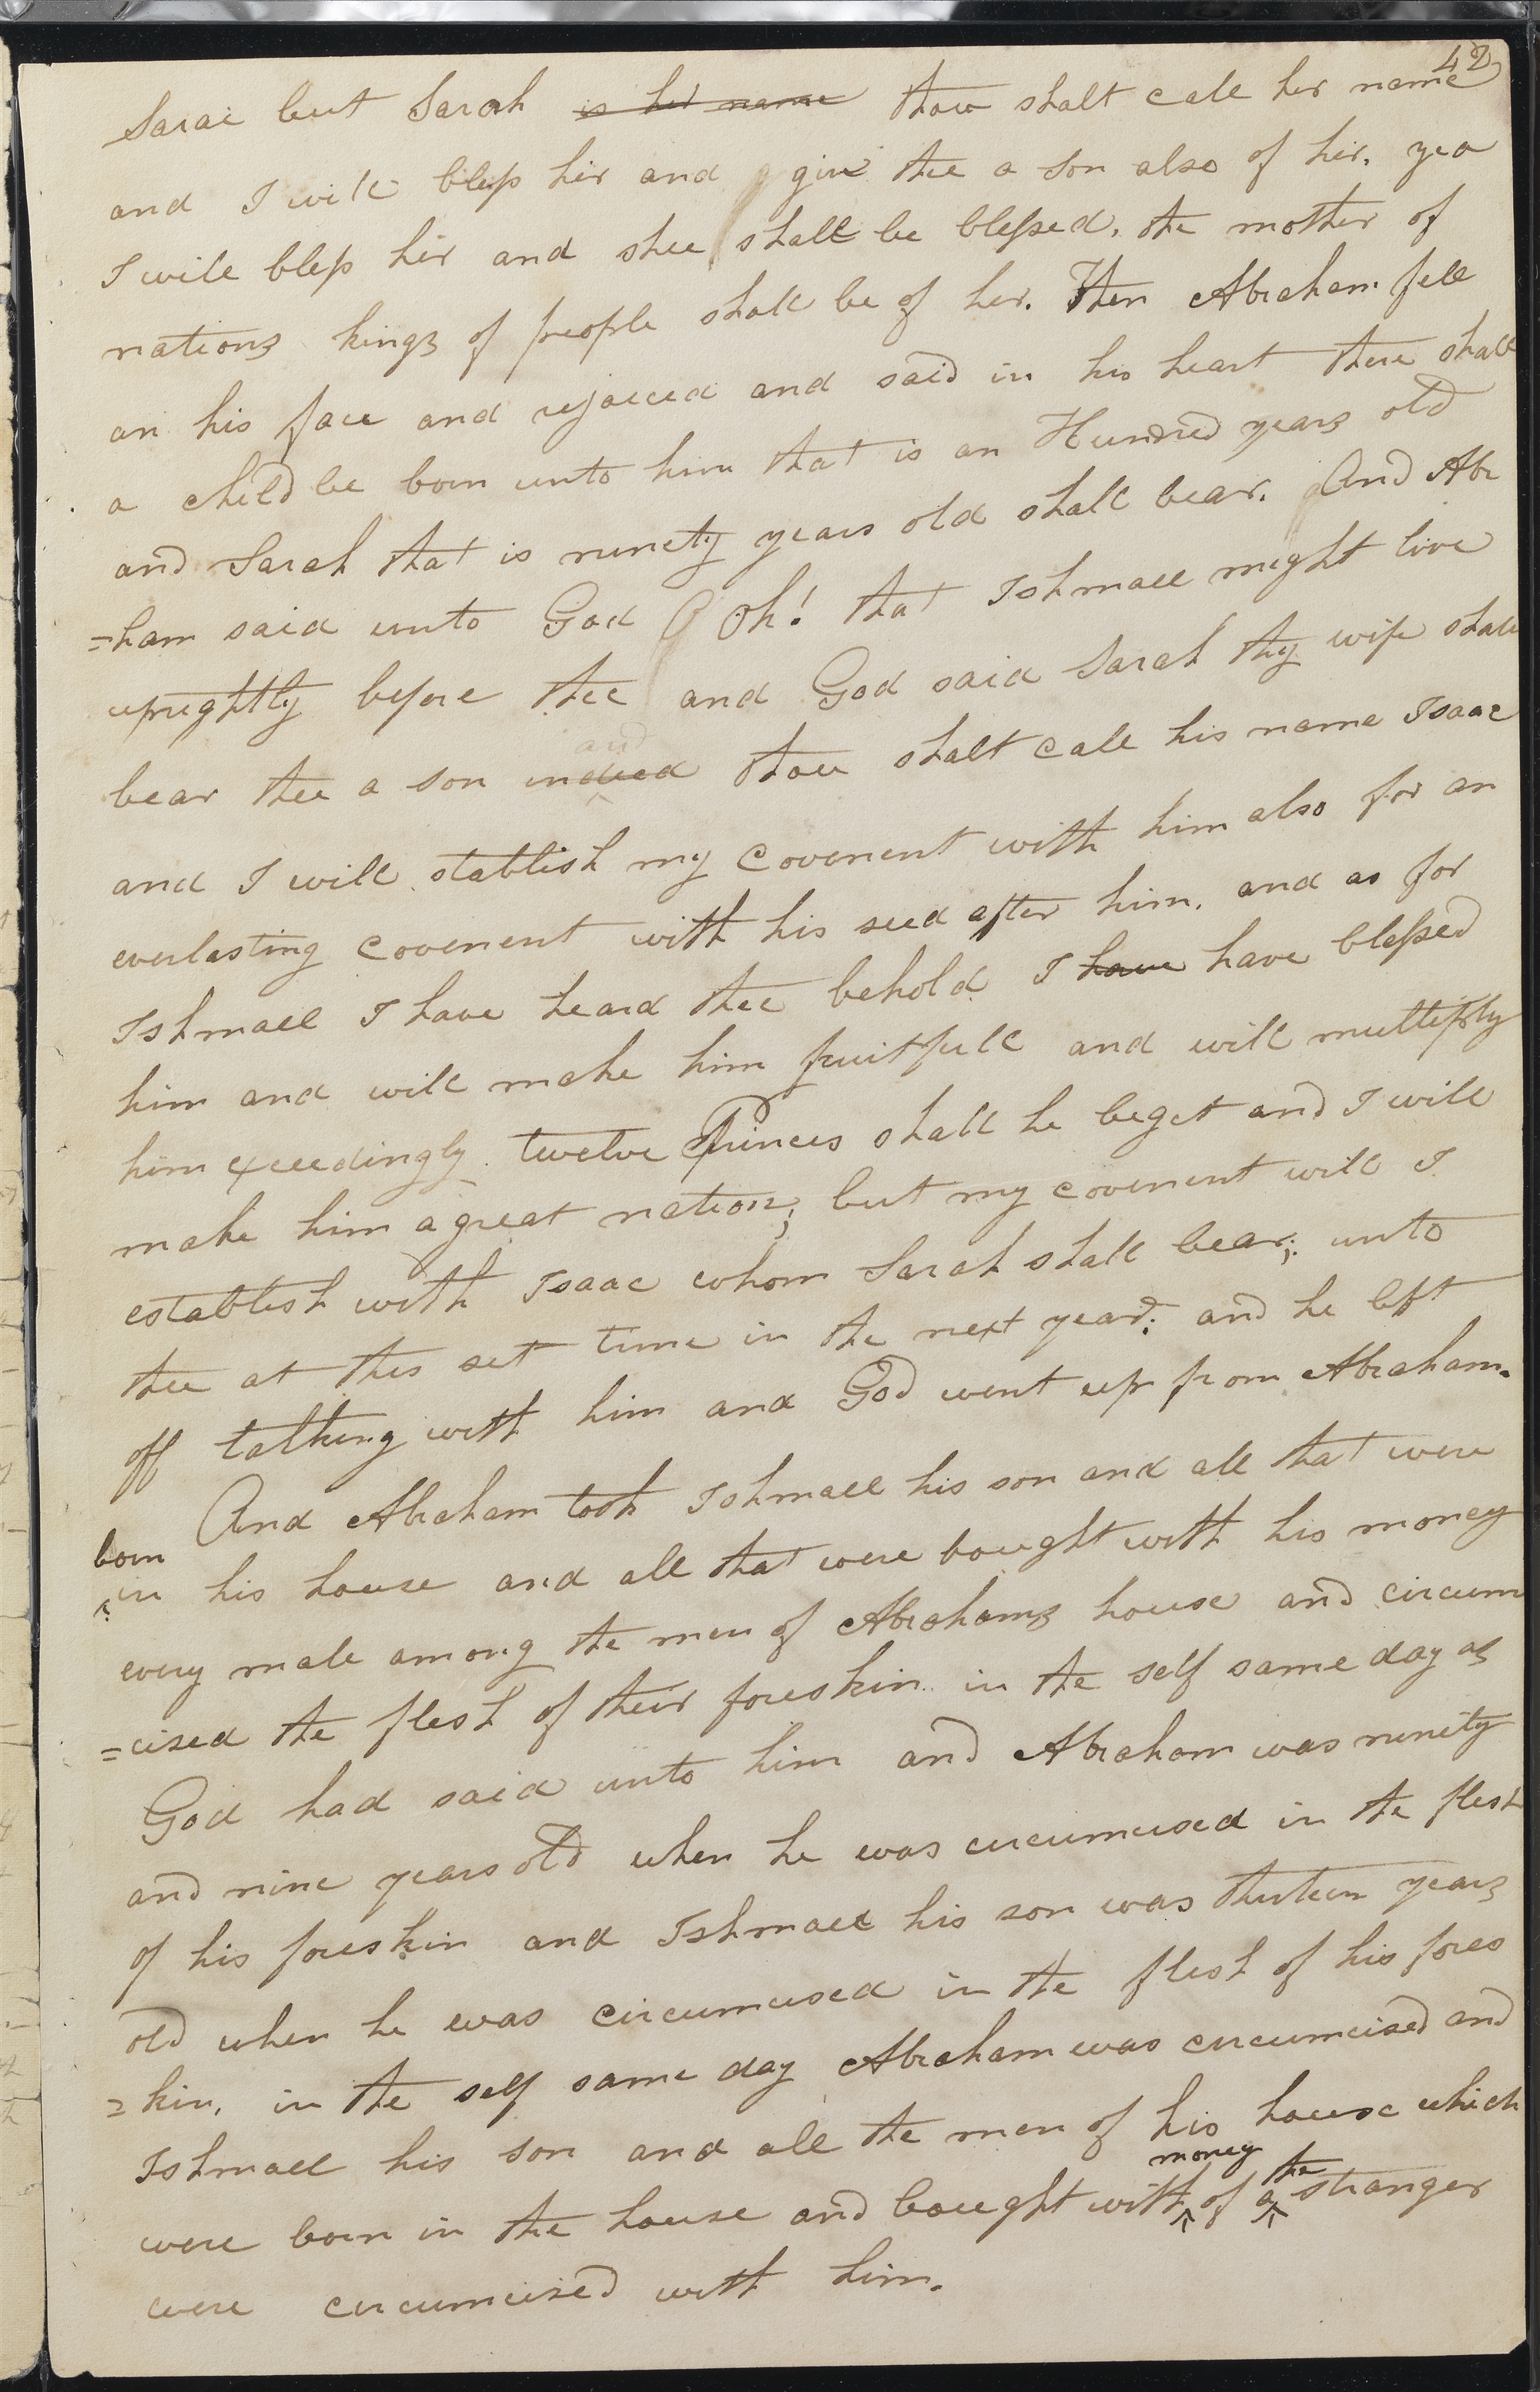 42
Sarai but Sarah is her name thou shalt call her name
and I will bless her and give thee a son also of her. yea
I will bless her and shee shall be blessed, the mother of
nations kings of people shall be of her. Then Abraham fell
on his face and rejoiced and said in his heart there shall
a child be born unto him that is an Hundred years old
and Sarah that is ninety years old shall bear. And Abr
=ham said unto God Oh! that Ishmael might live
uprightly before thee and God said Sarah thy wife shall
and
bear thee a son indeed thou shalt call his name Isaac
and I will stablish my covenent with him also for an
everlasting covenent with his seed after him. and as for
Ishmael I have heard thee behold I have have blessed
him and will make him fruitfull and will multiply
him exeedingly. twelve Princes shall he beget and I will
make him a great nation; but my covenent will I
establish with Isaac whom Sarah shall bear; unto
thee at this set time in the next year; and he left
off talking with him and God went up from Abraham.
And Abraham took Ishmael his son and all that were
born
in his house and all that were bought with his money
every male among the men of Abrahams house and circum
=cised the flesh of their foreskin in the self same day as
God had said unto him and Abraham was ninety
and nine years old when he was circumcised in the flesh
of his foreskin and Ishmael his son was thirteen years
old when he was circumcised in the flesh of his fores
=kin. in the self same day Abraham was circumcised and
Ishmael his son and all the men of his house which
money the
were born in the house and bought with of a stranger
were circumcised with him.